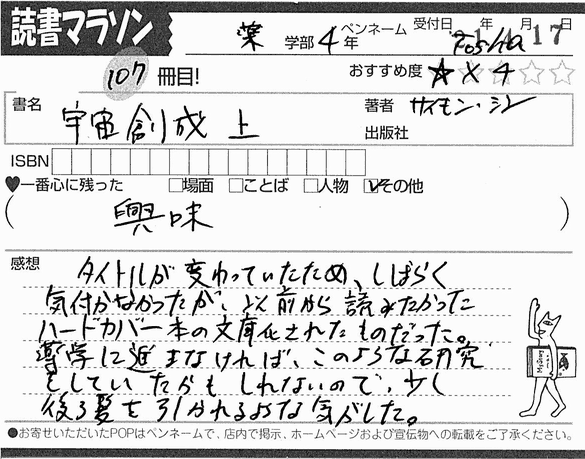 読書マラソン
薬 学部 4 年
ペンネーム Foshea
受付日 年 4 月 17 日
107 冊目!
おすすめ度 ★×4 ☆☆
書名 宇宙創成 上
著者 サイモン・シン
出版社
ISBN
♥一番心に残った □場面 □ことば □人物 ☑その他
( 興味 )
感想
タイトルが変わっていたため、しばらく
気付かなかったが、以前から読みたかった
ハードカバー本の文庫化されたものだった。
薬学に進まなければ、このような研究
をしていたかもしれないので、少し
後ろ髪を引かれるような気がした。
●お寄せいただいたPOPはペンネームで、店内で掲示、ホームページおよび宣伝物への転載をご了承ください。